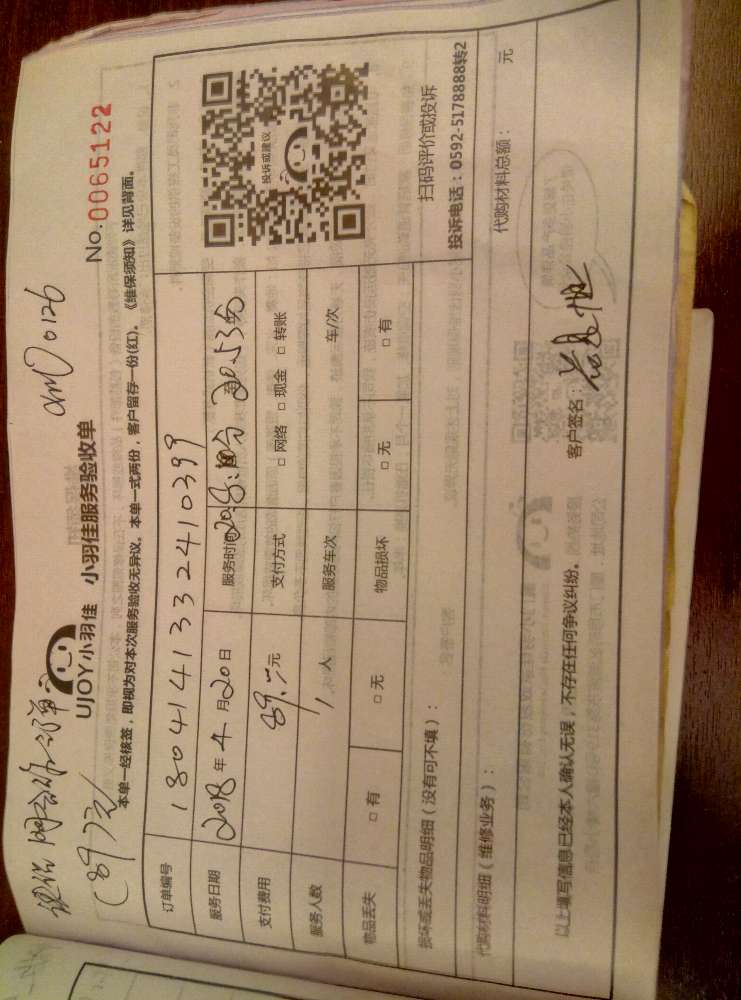 0126
(89元)
UJOY小羽佳 小羽佳服务验收单
No.0065122
本单一经核签，即视为对本次服务验收无异议。本单一式两份，客户留存一份(红)。《维保须知》详见背面。
订单编号 1804141332410399
服务日期 2018年4月20日 服务时间 至
支付费用 89.-元 支付方式 □网络 □现金 □转账
服务人数 1人 服务车次 车/次
物品丢失 □有 □无 物品损坏 □无 □有
投诉或建议
扫码评价或投诉
投诉电话：0592-5178888转2
损坏或丢失物品明细（没有可不填）：
代购材料明细（维修业务）： 代购材料总额： 元
以上填写信息已经本人确认无误，不存在任何争议纠纷。 客户签名：